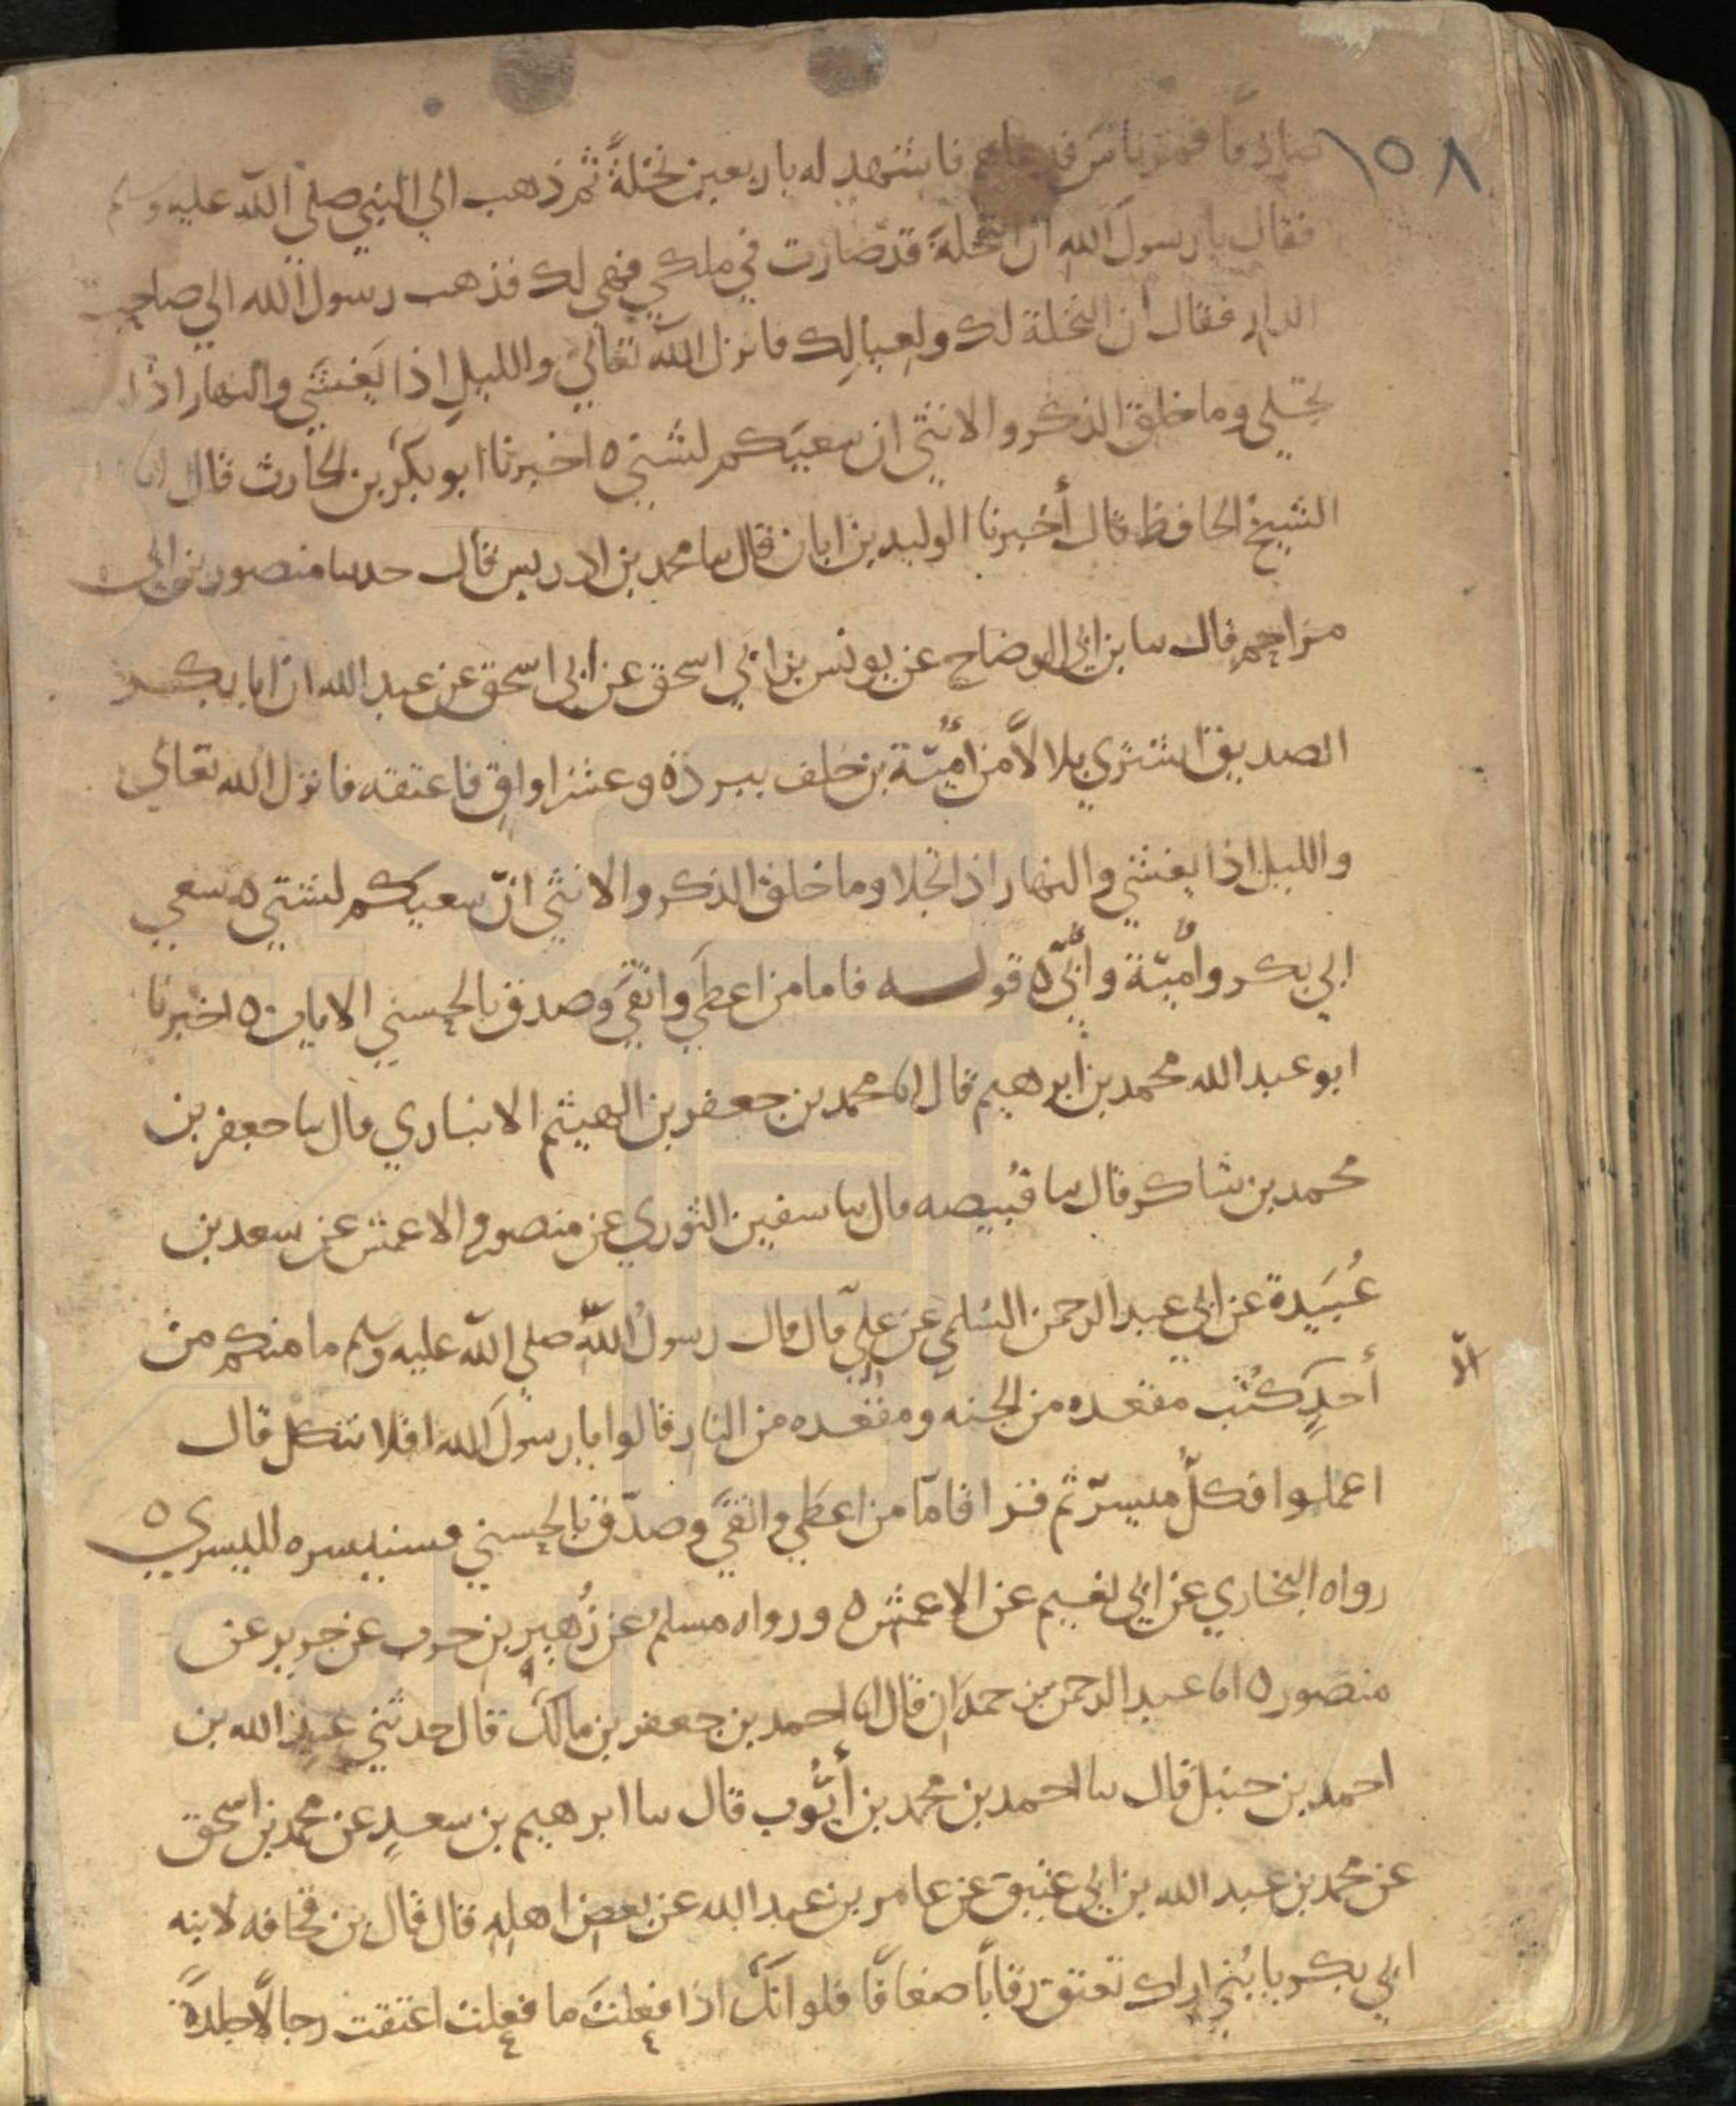 ١٥٨
فمر ناس فدعاهم فاشهد له باربعين نخلةً ثم ذهب الي النبي صلي الله عليه وسلم
فقال يا رسولَ الله ان النخلةَ قد صارت في ملكي فهي لك فذهب رسول الله الي صاحب
الدار فقال ان النخلة لك ولعيالِك فانزل الله تعالي والليلِ اذا يَغشَي والنهار اذا
تجلي وما خلق الذكر والانثي ان سعيَكم لشتي ه اخبرنا ابو بكر بن الحارث قال انا
الشيخ الحافظ قال أخبرنا الوليد بن ابان قال سا محمد بن ادريس قال حدسا منصور بن ابي
مزاحم قال سا بن ابي الوضاح عن يونس بن ابي اسحق عن ابي اسحق عن عبد الله ان ابا بكر
الصديق اشتري بلالاً من اميّة بن خلف ببردة وعشر اواقٍ فاعتقه فانزل الله تعالي
والليل اذا يغشي والنهار اذا تجلا وما خلق الذكر والانثي انّ سعيكم لشتي ه سعي
ابي بكر وأميّة وأُبَيّ ه قوله فاما من اعطي واتقَي وصدق بالحسني الايات ه اخبرنا
ابو عبد الله محمد بن ابرهيم قال انا محمد بن جعفر بن الهيثم الانباري قال سا جعفر بن
محمد بن شاكر قال سا قبيصه قال سا سفين الثوري عن منصور والاعمش عن سعد بن
عُبَيدة عن ابي عبد الرحمن السُلمي عن عليّ قال قال رسولُ اللهِ صلي الله عليه وسلم ما منكم من
أحدٍ كُتب مقعده من الجنه ومقعده من النار قالوا يا رسولَ الله افلا نتكل قال
الّا
اعملوا فكلٌ ميسرّ ثم قرا فامّا من اعطَي واتقَي وصدّق بالحسني فسنيسره لليسري ه
رواه البخاري عن ابي نعيم عن الاعمش ه ورواه مسلم عن زُهير بن حرب عن جرير عن
منصور ه انا عبد الرحمن بن حمدَان قال انا احمد بن جعفر بن مالك قال حدثني عبد الله بن
احمد بن حنبل قال سا احمد بن محمد بن أيُّوب قال سا ابرهيم بن سعدٍ عن محمد بن اسحق
عن محمد بن عبد الله بن ابي عتيق عن عامر بن عبد الله عن بعض اهله قال قال بن قحافه لابنه
ابي بكر يا بُني اراك تعتق رقابًا ضعافًا فلو انكَ اذا فعلتَ ما فعلت اعتقت رجالًا جلدةً